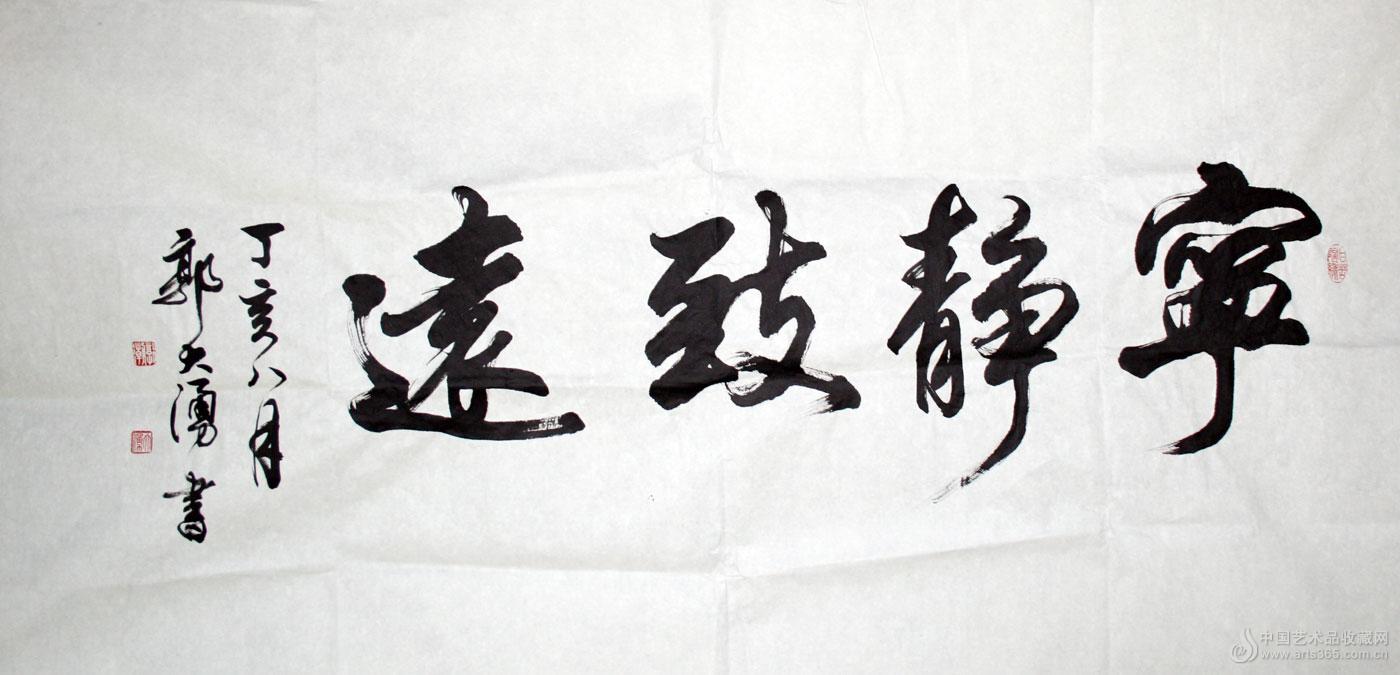 寧靜致遠
丁亥八月
郭大湧書
中国艺术品收藏网
www.arts365.com.cn